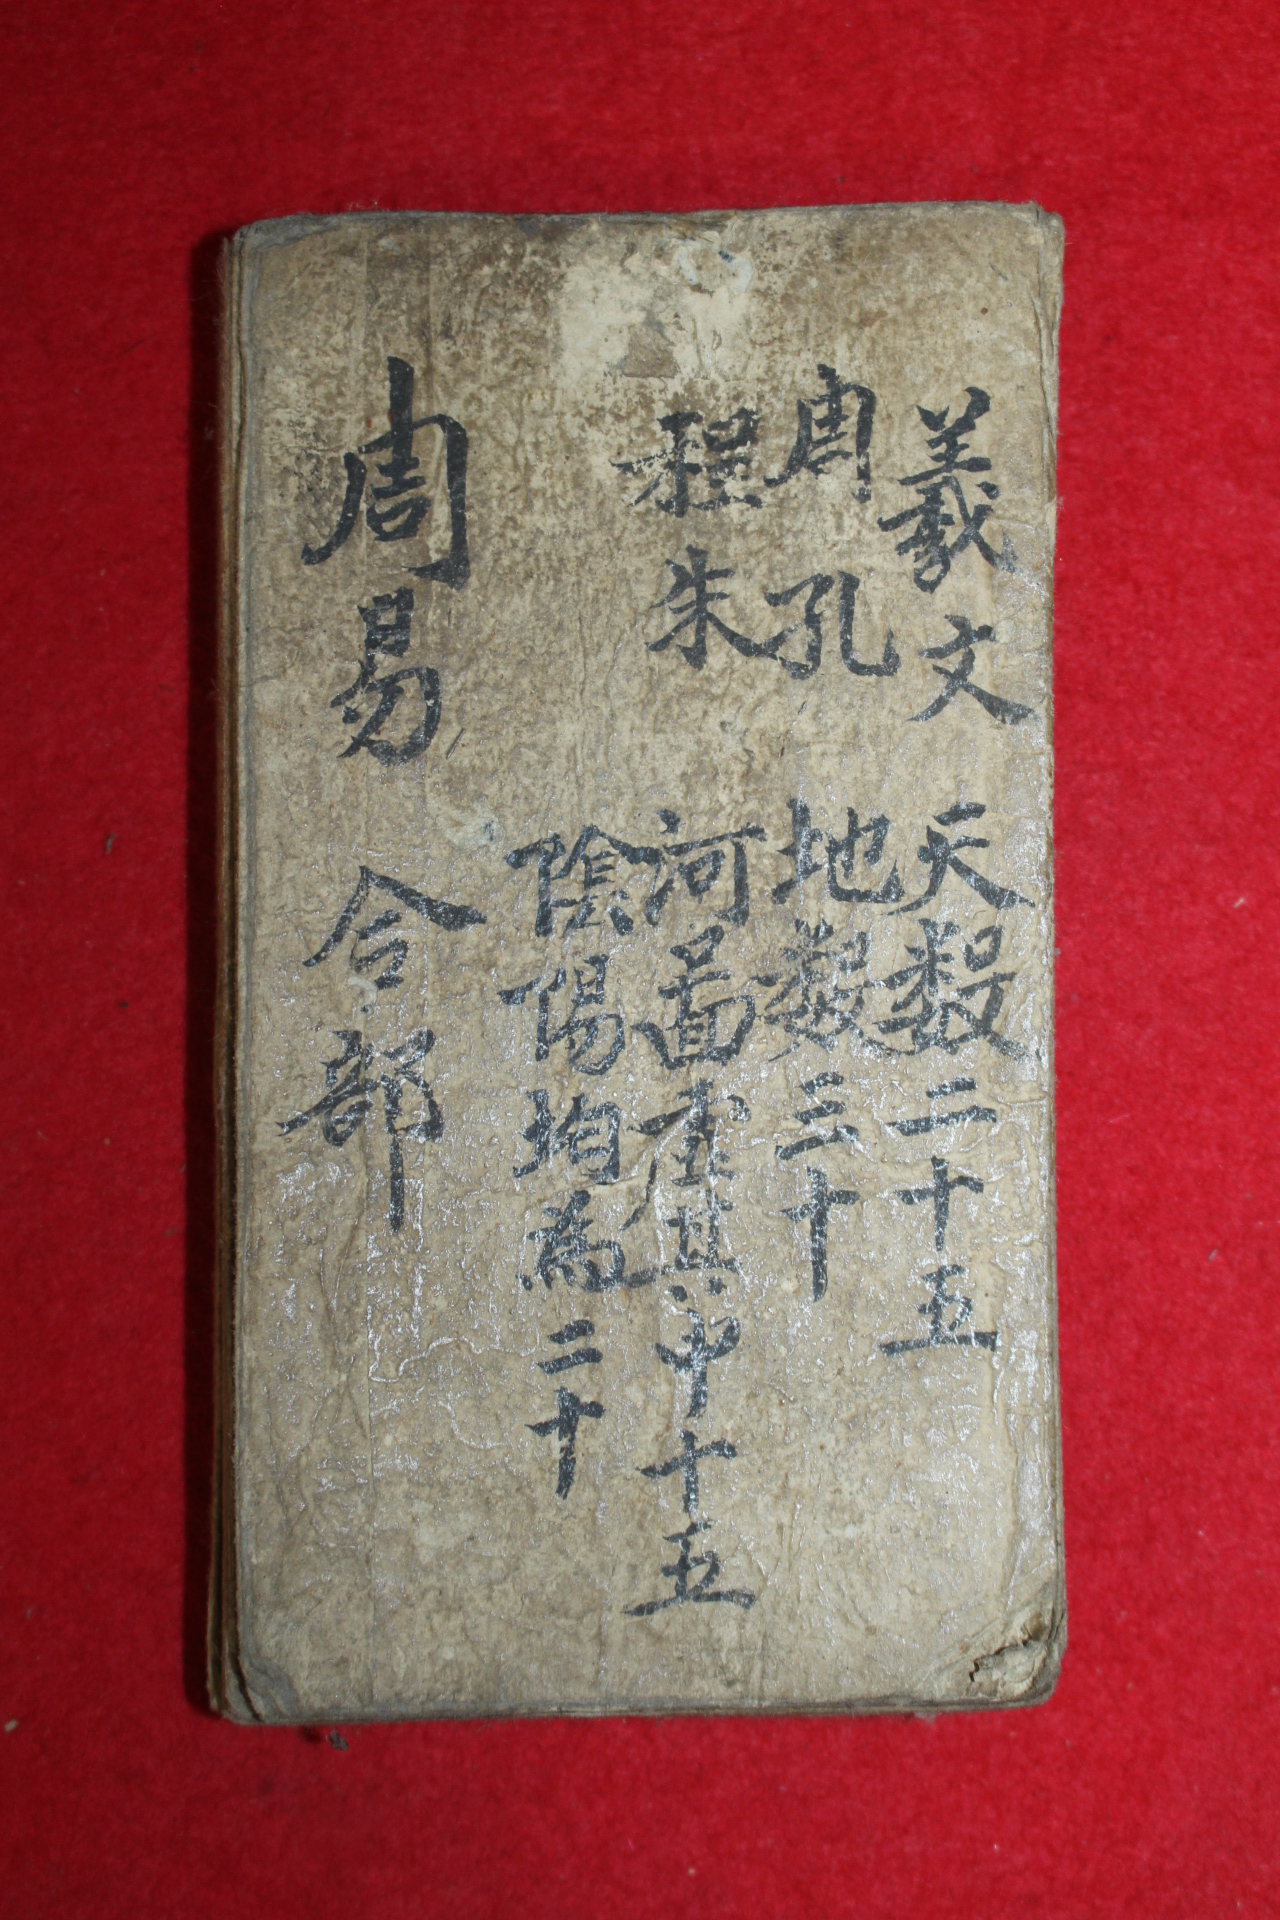 羲文 天數二十五
周孔 地數三十
程朱 河圖虛其中十五
陰陽均為二十
周易 合部